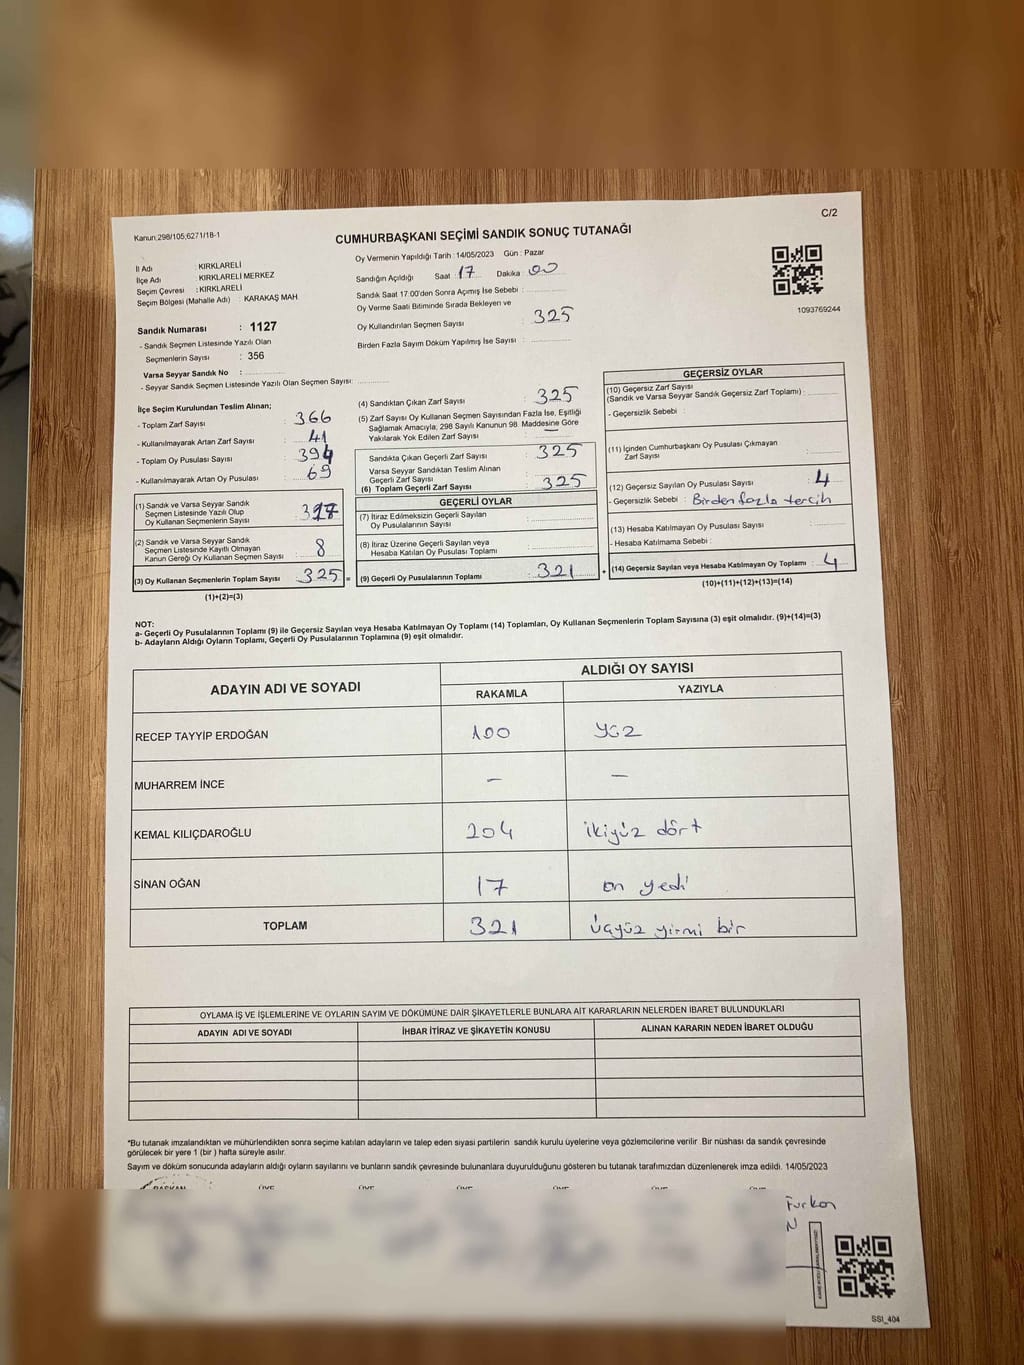 C/2
Kanun;298/105;6271/18-1
CUMHURBAŞKANI SEÇİMİ SANDIK SONUÇ TUTANAĞI
İl Adı : KIRKLARELİ
İlçe Adı : KIRKLARELİ MERKEZ
Seçim Çevresi : KIRKLARELİ
Seçim Bölgesi (Mahalle Adı) : KARAKAŞ MAH.
Sandık Numarası : 1127
- Sandık Seçmen Listesinde Yazılı Olan
Seçmenlerin Sayısı : 356
Varsa Seyyar Sandık No :
- Seyyar Sandık Seçmen Listesinde Yazılı Olan Seçmen Sayısı:
Oy Vermenin Yapıldığı Tarih : 14/05/2023 Gün : Pazar
Sandığın Açıldığı Saat 17 Dakika 00
Sandık Saat 17:00'den Sonra Açımış İse Sebebi :
Oy Verme Saati Bitiminde Sırada Bekleyen ve
Oy Kullandırılan Seçmen Sayısı : 325
Birden Fazla Sayım Döküm Yapılmış İse Sayısı :
1093769244
İlçe Seçim Kurulundan Teslim Alınan;
- Toplam Zarf Sayısı : 366
- Kullanılmayarak Artan Zarf Sayısı : 41
- Toplam Oy Pusulası Sayısı : 394
- Kullanılmayarak Artan Oy Pusulası : 69
(1) Sandık ve Varsa Seyyar Sandık
Seçmen Listesinde Yazılı Olup
Oy Kullanan Seçmenlerin Sayısı :
(2) Sandık ve Varsa Seyyar Sandık
Seçmen Listesinde Kayıtlı Olmayan
Kanun Gereği Oy Kullanan Seçmen Sayısı : 8
(3) Oy Kullanan Seçmenlerin Toplam Sayısı : 325 =
(1)+(2)=(3)
(4) Sandıktan Çıkan Zarf Sayısı : 325
(5) Zarf Sayısı Oy Kullanan Seçmen Sayısından Fazla İse, Eşitliği
Sağlamak Amacıyla, 298 Sayılı Kanunun 98. Maddesine Göre
Yakılarak Yok Edilen Zarf Sayısı : —
Sandıkta Çıkan Geçerli Zarf Sayısı : 325
Varsa Seyyar Sandıktan Teslim Alınan
Geçerli Zarf Sayısı :
(6) Toplam Geçerli Zarf Sayısı : 325
GEÇERLİ OYLAR
(7) İtiraz Edilmeksizin Geçerli Sayılan
Oy Pusulalarının Sayısı :
(8) İtiraz Üzerine Geçerli Sayılan veya
Hesaba Katılan Oy Pusulası Toplamı :
(9) Geçerli Oy Pusulalarının Toplamı : 321 +
GEÇERSİZ OYLAR
(10) Geçersiz Zarf Sayısı
(Sandık ve Varsa Seyyar Sandık Geçersiz Zarf Toplamı) :
- Geçersizlik Sebebi :
(11) İçinden Cumhurbaşkanı Oy Pusulası Çıkmayan
Zarf Sayısı :
(12) Geçersiz Sayılan Oy Pusulası Sayısı : 4
- Geçersizlik Sebebi : Birden fazla tercih
(13) Hesaba Katılmayan Oy Pusulası Sayısı :
- Hesaba Katılmama Sebebi :
(14) Geçersiz Sayılan veya Hesaba Katılmayan Oy Toplamı : 4
(10)+(11)+(12)+(13)=(14)
NOT:
a- Geçerli Oy Pusulalarının Toplamı (9) ile Geçersiz Sayılan veya Hesaba Katılmayan Oy Toplamı (14) Toplamları, Oy Kullanan Seçmenlerin Toplam Sayısına (3) eşit olmalıdır. (9)+(14)=(3)
b- Adayların Aldığı Oyların Toplamı, Geçerli Oy Pusulalarının Toplamına (9) eşit olmalıdır.
ADAYIN ADI VE SOYADI ALDIĞI OY SAYISI
RAKAMLA YAZIYLA
RECEP TAYYİP ERDOĞAN 100 yüz
MUHARREM İNCE — —
KEMAL KILIÇDAROĞLU 204 ikiyüz dört
SİNAN OĞAN 17 on yedi
TOPLAM 321 üçyüz yirmi bir
OYLAMA İŞ VE İŞLEMLERİNE VE OYLARIN SAYIM VE DÖKÜMÜNE DAİR ŞİKAYETLERLE BUNLARA AİT KARARLARIN NELERDEN İBARET BULUNDUKLARI
ADAYIN ADI VE SOYADI İHBAR İTİRAZ VE ŞİKAYETİN KONUSU ALINAN KARARIN NEDEN İBARET OLDUĞU
*Bu tutanak imzalandıktan ve mühürlendikten sonra seçime katılan adayların ve talep eden siyasi partilerin sandık kurulu üyelerine veya gözlemcilerine verilir. Bir nüshası da sandık çevresinde
görülecek bir yere 1 (bir) hafta süreyle asılır.
Sayım ve döküm sonucunda adayların aldığı oyların sayılarını ve bunların sandık çevresinde bulunanlara duyurulduğunu gösteren bu tutanak tarafımızdan düzenlenerek imza edildi. 14/05/2023
BAŞKAN ÜYE ÜYE ÜYE ÜYE ÜYE ÜYE
Furkan
N
SSI_404